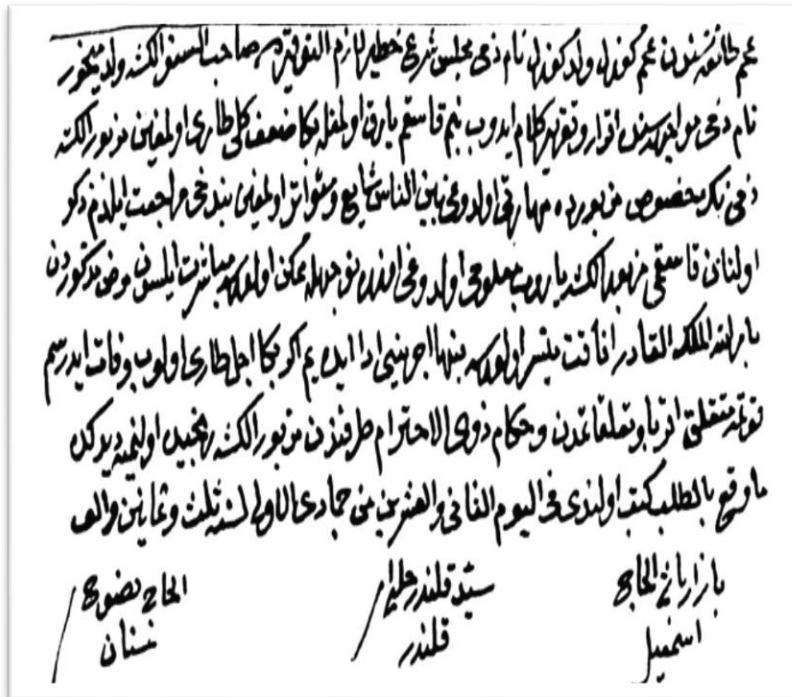 عجم طائفه‌سندن عجم كوندل ولد كوندل نام ذمی مجلس شرع خطیر لازم التوقیرده صاحب السفر الكسه ولد
نام ذمی مواجهه‌سنده اقرار و تقریر كلام ایدوب بنم قاسقم یارق اولمغله بكا ضعف كلی طاری اولمغین مزبور الكسه
ذمی نك خصوص مزبورده مهارتی اولدوغی بین الناس شایع و متواتر اولمغین بندخی مراجعت ایلدم ذكر
اولنان قاسقمی مزبور الكسه یاروب معلومی اولدوغی اوزره نوجهله ممكن اولورسه مباشرت ایلسون مرض مذكوردن
بامر الله الملك القادر افاقت میسر اولورسه بینهما اجرتنی ادا ایده‌یم اكر بكا اجل طاری اولوب وفات ایدرسم
فوتمه متعلق اقربا و تعلقاتمدن و حكام ذوی الاحترام طرفندن مزبور الكسه رنجیده اولنمیه دیدكده
ما وقع بالطلب كتب اولندی فی الیوم الثانی والعشرین من جمادی الاولی لسنه ثلث وثمانین والف
بازارباشی الحاج سید قلندر الحاج
اسمعیل قلندر سنان